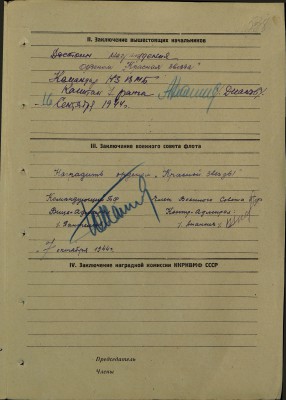 II. Заключение вышестоящих начальников
Достоин награждения
ордена "Красная звезда"
Командир
Капитан 1 ранга
16 Сентября 1944г.
III. Заключение военного совета флота
Наградить орденом "Красной звезды"
Командующий Член Военного Совета
Вице-Адмирал Контр-Адмирал
7 октября 1944г.
IV. Заключение наградной комиссии НКНКВМФ СССР
Председатель
Члены